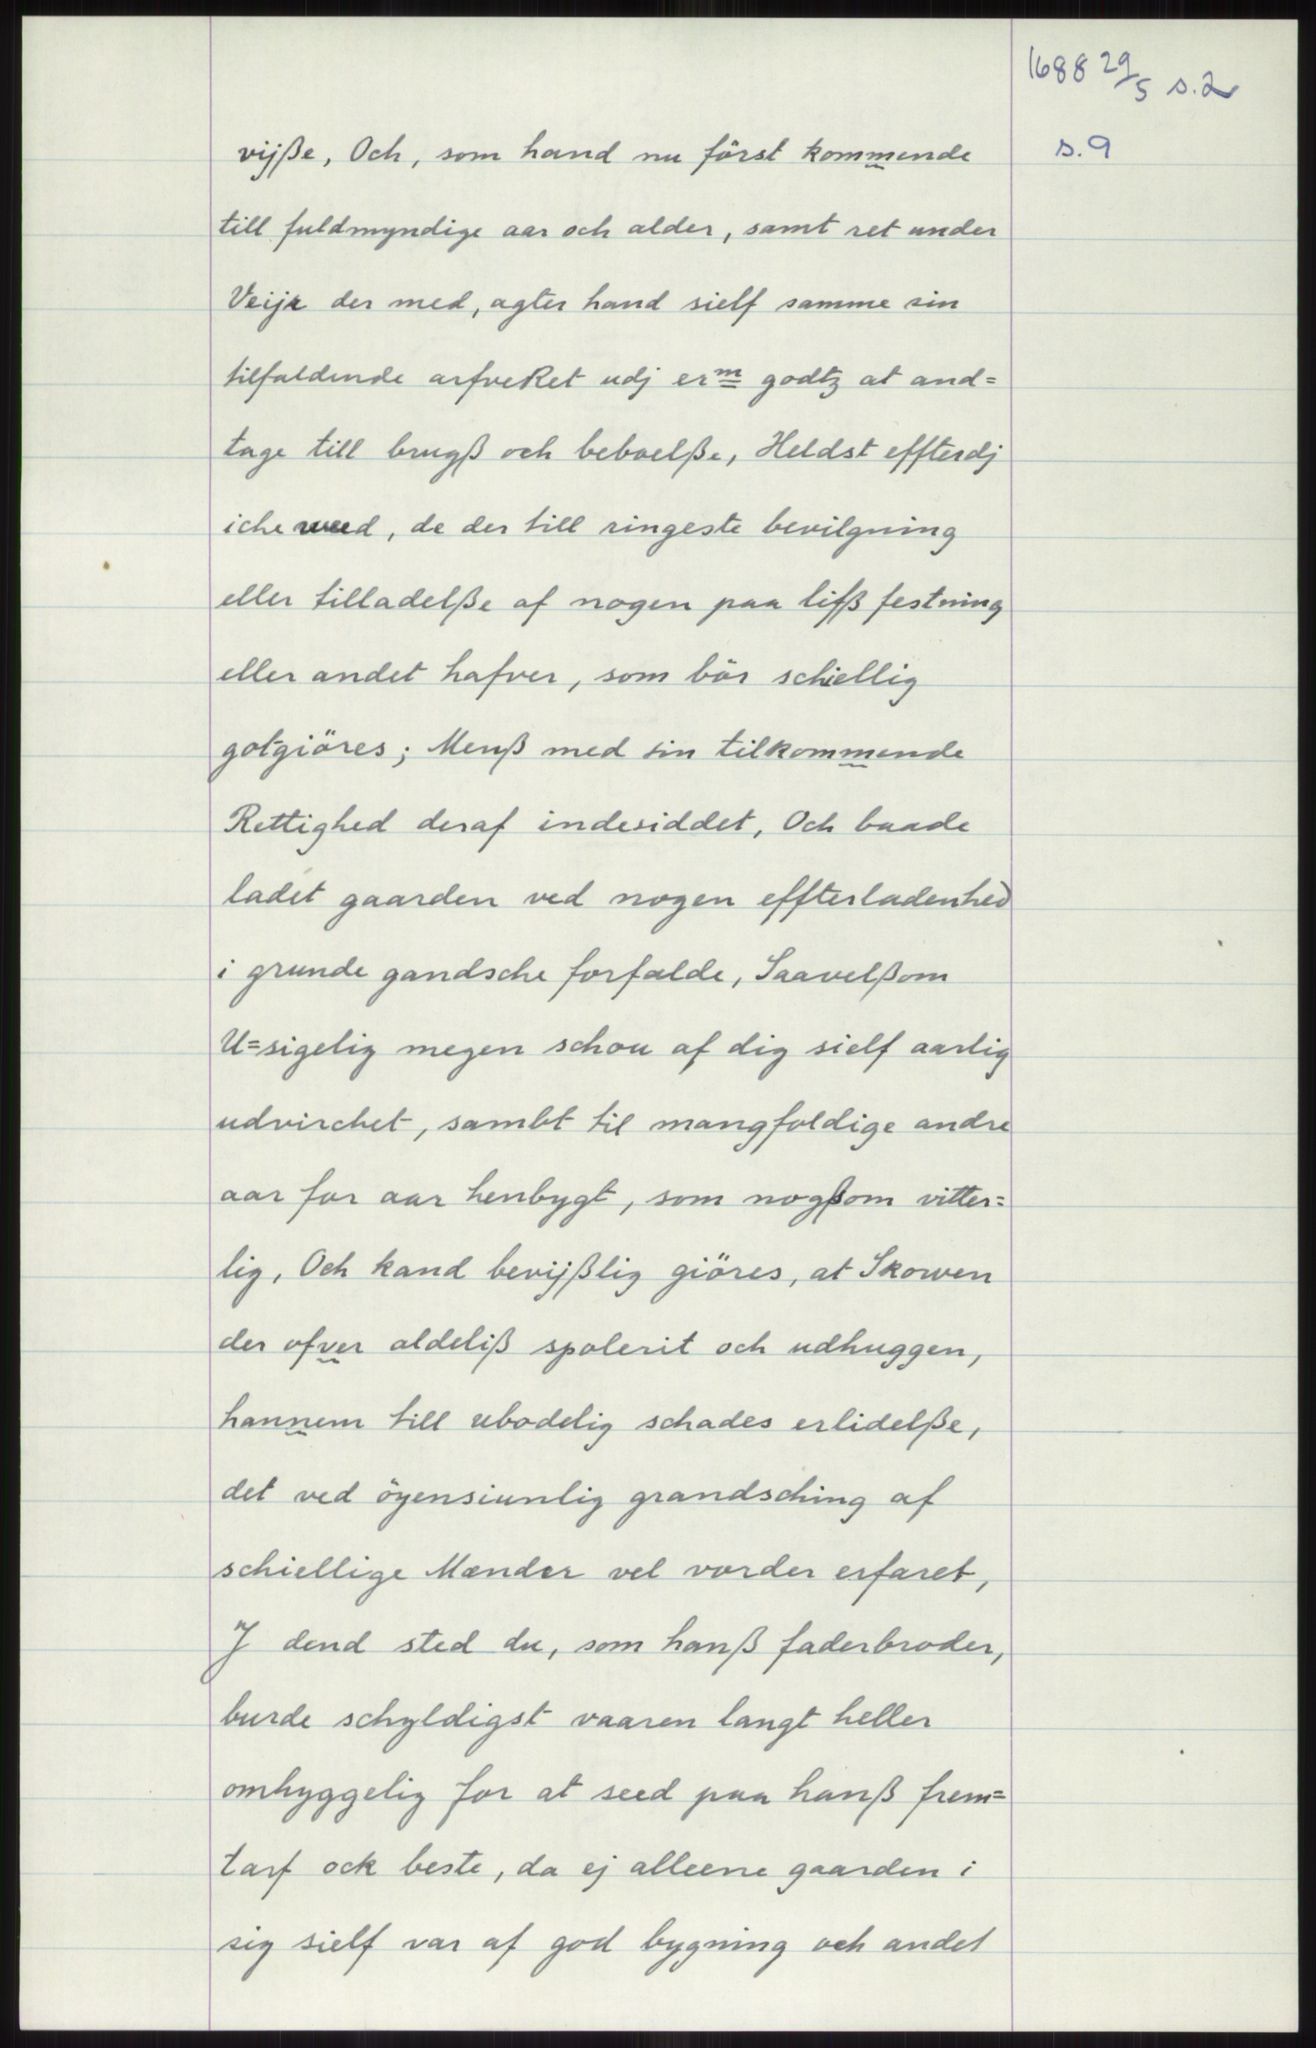 1688 29/5 s.2
s.9
vijße, Och, som hand nu först kommende
till fuldmyndige aar och alder, samt ret under
Veije der med, agter hand sielf samme sin
tilfaldende arfveRet udj erm godtz at and=
tage till brugß och beboelße, Heldst effterdj
iche weed, de der till ringeste bevilgning
eller tilladelße af nogen paa lifß festning
eller andet hafver, som bör schiellig
gotgiöres; Menß med sin tilkommende
Rettighed deraf indesiddet, Och baade
ladet gaarden ved nogen effterladenhed
i grunde gandsche forfalde, Saavelßom
U=sigelig megen schou af dig sielf aarlig
udvirchet, sambt til mangfoldige andre
aar for aar henbygt, som nogßom vitter=
lig, Och kand bevijßlig giöres, at Skowen
der ofver aldeliß spolerit och udhuggen,
hannem till ubodelig schades erlidelße,
det ved öyensiunlig grandsching af
schiellige Mænder vel vorder erfaret,
J dend sted du, som hanß faderbroder,
burde schyldigst vaaren langt heller
omhyggelig for at seed paa hanß frem=
tarf ock beste, da ej alleene gaarden i
sig sielf var af god bygning och andet